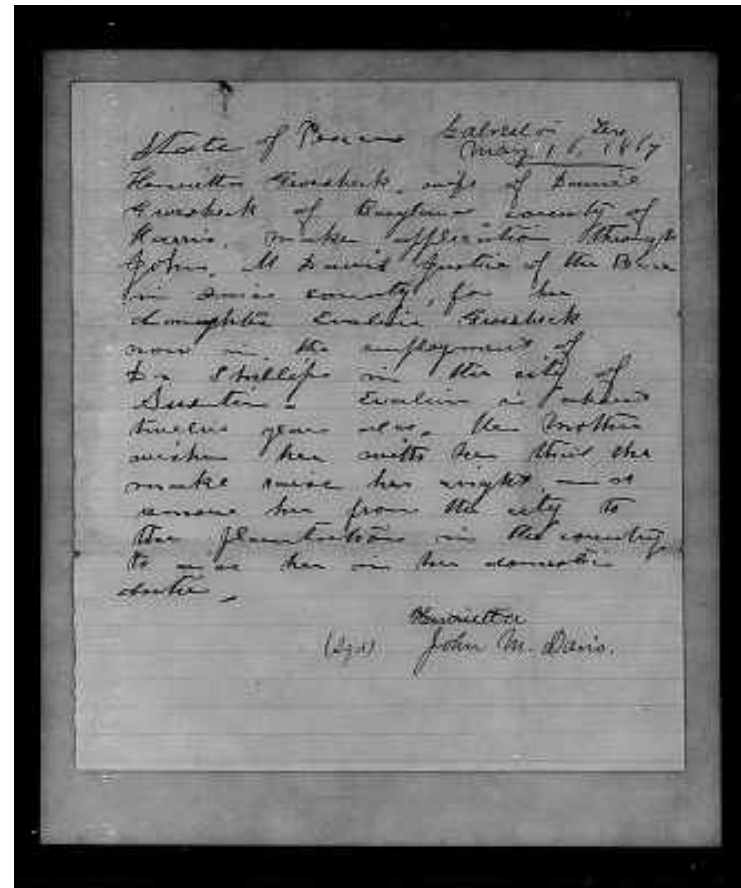 State of Texas Galveston Tex
May 16, 1867
Henrietta Groesbeck, wife of Daniel
Groesbeck of county of
Harris, makes application through
John, M Davis Justice of the Peace
in said county, for her
daughter Evaline Groesbeck
now in the employment of
Dr Phillips in the city of
Evaline is about
twelve years old. Her mother
wishes her with her that she
might raise her right and
remove her from the city to
the plantation in the country
to her in her domestic
duties.
Henrietta
(Sgd) John M. Davis.